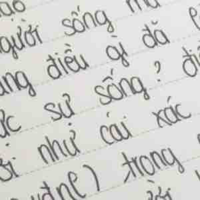 người sống mà
ng điều gì đã
ực sự sống? đi
ời như cái xác
) trong